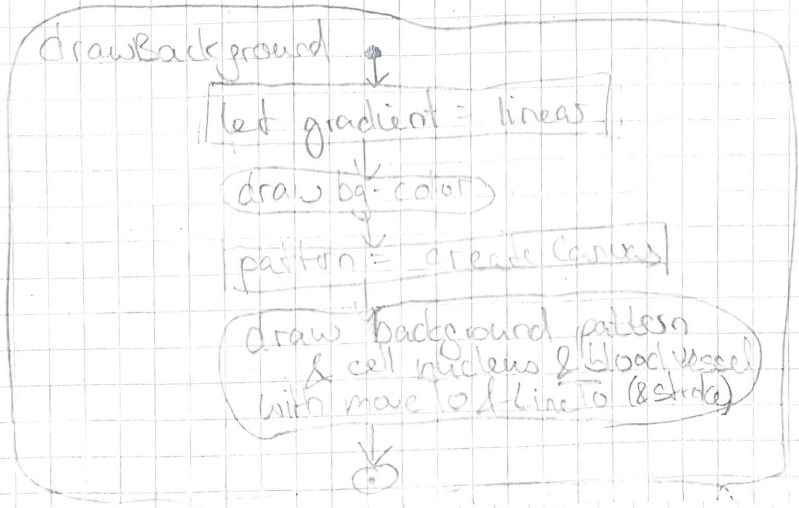 drawBackground
let gradient = linear
draw bg-color
pattern = createCanvas
draw background pattern
& cell nucleus & blood vessel
with moveTo & LineTo (& stroke)